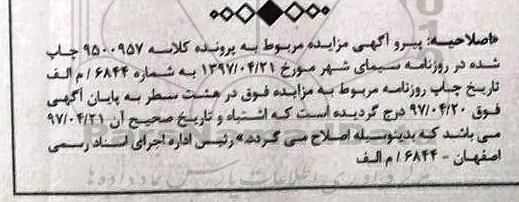 «اصلاحیه: پیرو آگهی مزایده مربوط به پرونده کلاسه ۹۵۰۰۹۵۷ چاپ
شده در روزنامه سیمای شهر مورخ ۱۳۹۷/۰۴/۲۱ به شماره ۶۸۴۴ / م الف
تاریخ چاپ روزنامه مربوط به مزایده فوق در هشت سطر به پایان آگهی
فوق ۹۷/۰۴/۲۰ درج گردیده است که اشتباه و تاریخ صحیح آن ۹۷/۰۴/۲۱
می باشد که بدینوسیله اصلاح می گردد.» رئیس اداره اجرای اسناد رسمی
اصفهان - ۶۸۴۴ / م الف